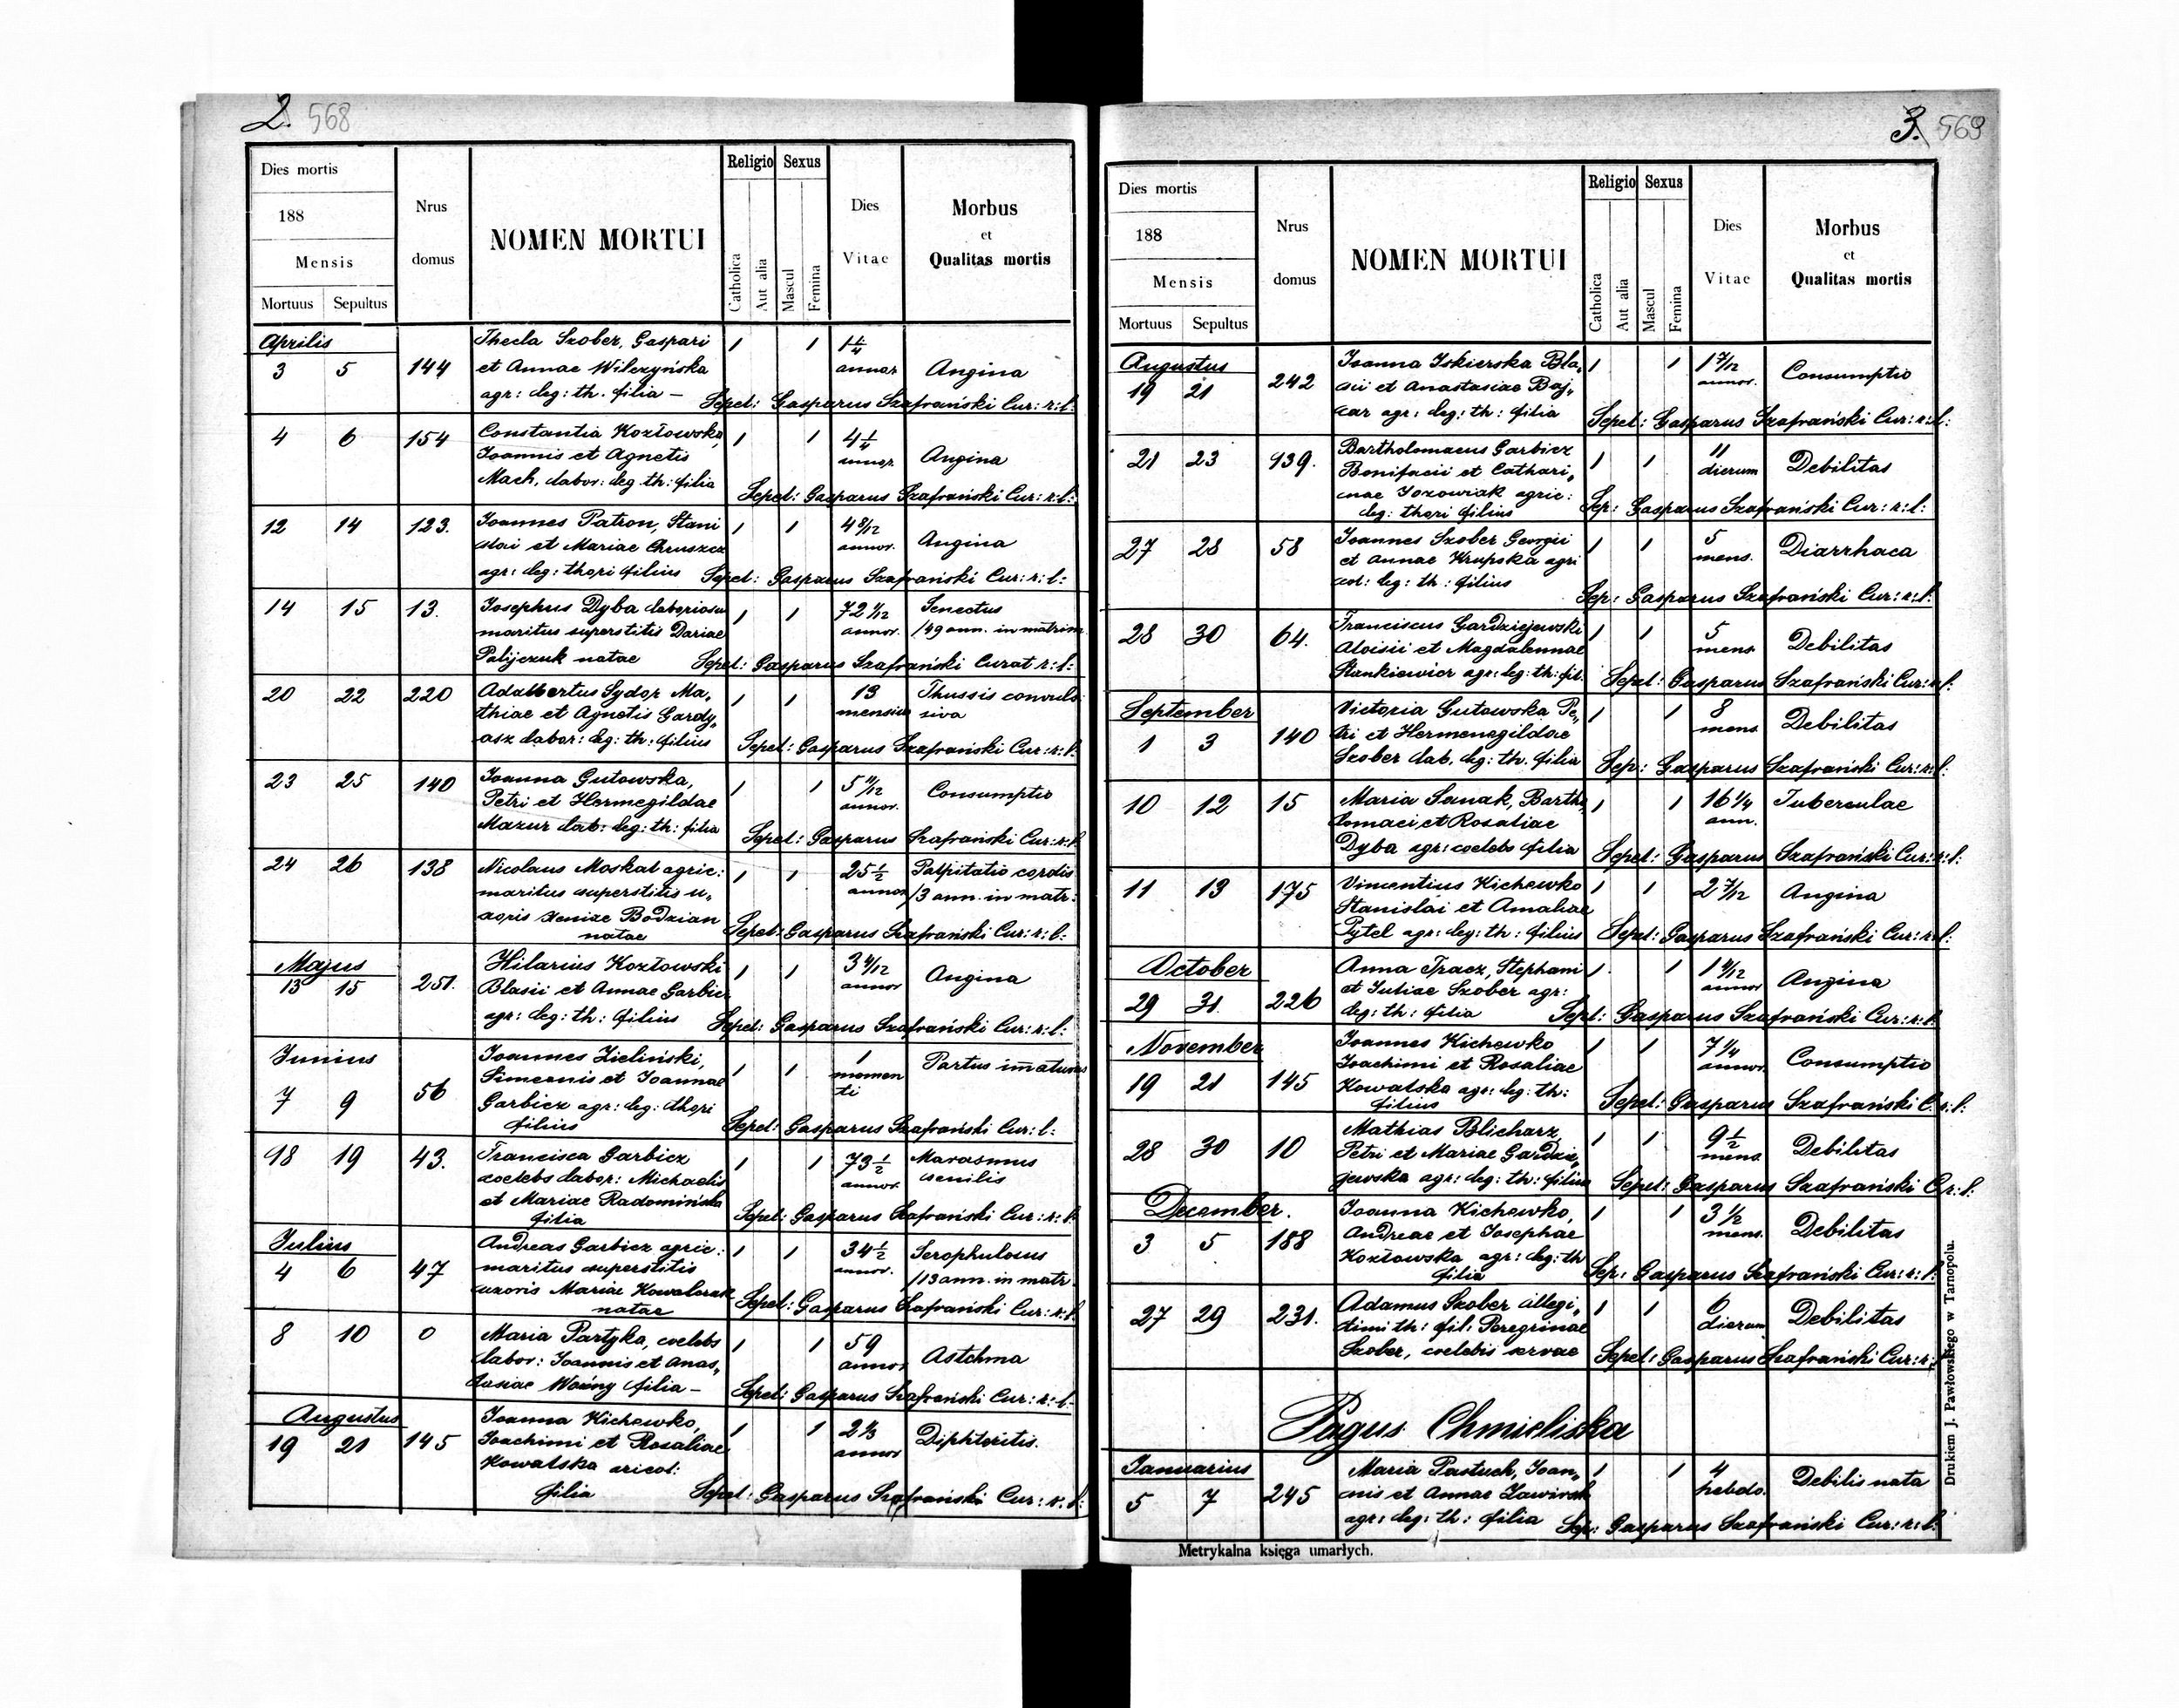 2. 568
Dies mortis
188
Mensis
Mortuus Sepultus
Nrus
domus
NOMEN MORTUI
Religio
Catholica
Aut alia
Sexus
Mascul
Femina
Dies
Vitae
Morbus
et
Qualitas mortis
Aprilis
3 5 144
Thecla Szober, Gaspari 1 1 1 1/4
et Annae Wilczyńska annor. Angina
agr: leg: th. filia —
Sepel: Gasparus Szafrański Cur: r: l:
4 6 154
Constantia Kozłowska, 1 1 4 1/4
Joannis et Agnetis annor. Angina
Mach, labor: leg th: filia
Sepel: Gasparus Szafrański Cur: r: l:
12 14 123.
Joannes Patron, Stani 1 1 4 8/12
slai et Mariae Chruszcz annor. Angina
agr: leg: thori filius
Sepel: Gasparus Szafrański Cur: r: l:
14 15 13.
Josephus Dyba laboriosus 1 1 72 1/12 Senectus
maritus superstitis Dariae annor. /49 ann. in matrim
Palijczuk natae
Sepel: Gasparus Szafrański Curat r: l:
20 22 220
Adalbertus Sydor, Ma„ 1 1 13 Thussis convul
thiae et Agnetis Gardy„ mensium siva
asz labor: leg: th: filius
Sepel: Gasparus Szafrański Cur: r: l:
23 25 140
Joanna Gutowska, 1 1 5 11/12
Petri et Hermegildae annor. Consumptio
Mazur lab: leg: th: filia
Sepel: Gasparus Szafrański Cur: r: l:
24 26 138
Nicolaus Moskal agric: 1 1 25 1/2 Palpitatio cordis
maritus superstitis u„ annor /3 ann. in matr:
xoris Xeniae Bodzian
natae
Sepel: Gasparus Szafrański Cur: r: l:
Majus
13 15 251.
Hilarius Kozłowski 1 1 3 4/12
Blasii et Annae Garbicz annor Angina
agr: leg: th: filius
Sepel: Gasparus Szafrański Cur: r: l:
Junius
7 9 56
Joannes Zieliński, 1 1 1 Partus im̄aturus
Simeonis et Joannae momen
Garbicz agr: leg: thori ti
filius
Sepel: Gasparus Szafrański Cur: l:
18 19 43.
Francisca Garbicz 1 1 73 1/2 Marasmus
coelebs labor: Michaelis annor. senilis
et Mariae Radomińska
filia
Sepel: Gasparus Szafrański Cur: r: l:
Julius
4 6 47
Andreas Garbicz agric: 1 1 34 1/2 Scrophulosus
maritus superstitis annor. /13 ann. in matr
uxoris Mariae Kowalczuk
natae
Sepel: Gasparus Szafrański Cur: r: l:
8 10 0
Maria Partyka, coelebs 1 1 59
labor: Joannis et Anas„ annor Astchma
tasiae Woźny filia —
Sepel: Gasparus Szafrański Cur: r: l:
Augustus
19 21 145
Joanna Kichewko, 1 1 2 1/3
Joachimi et Rosaliae annor Diphteritis.
Kowalska aricol:
filia
Sepel: Gasparus Szafrański Cur: r: l:
3. 569
Dies mortis
188
Mensis
Mortuus Sepultus
Nrus
domus
NOMEN MORTUI
Religio
Catholica
Aut alia
Sexus
Mascul
Femina
Dies
Vitae
Morbus
et
Qualitas mortis
Augustus
19 21 242
Joanna Iskierska Bla„ 1 1 1 7/12
sii et Anastasiae Baj„ annor. Consumptio
car agr: leg: th: filia
Sepel: Gasparus Szafrański Cur: r: l:
21 23 139.
Bartholomaeus Garbicz 1 1 11
Bonifacii et Cathari„ dierum Debilitas
nae Jozowiak agric:
leg: thori filius
Sep: Gasparus Szafrański Cur: r: l:
27 28 58
Joannes Szober Georgii 1 1 5
et Annae Krupska agri mens. Diarrhaea
col: leg: th: filius
Sep: Gasparus Szafrański Cur: r: l:
28 30 64.
Franciscus Gardziejewski 1 1 5
Aloisii et Magdalennae mens. Debilitas
Stankiewicz agr: leg: th: fil.
Sepel: Gasparus Szafrański Cur: r: l:
September
1 3 140
Victoria Gutowska Pe„ 1 1 8
tri et Hermenegildae mens. Debilitas
Szober lab. leg: th. filia
Sep: Gasparus Szafrański Cur: r: l:
10 12 15
Maria Sanak, Bartho 1 1 16 1/4
lomaei et Rosaliae ann. Tuberculae
Dyba agr: coelebs filia
Sepel: Gasparus Szafrański Cur: r: l:
11 13 175
Vincentius Kichewko 1 1 2 7/12
Stanislai et Amaliae Angina
Pytel agr: leg: th: filius
Sepel: Gasparus Szafrański Cur: r: l:
October
29 31. 226
Anna Tracz, Stephani 1 1 1 4/12
et Juliae Szober agr: annor Angina
leg: th: filia
Sepel: Gasparus Szafrański Cur: r: l:
November
19 21 145
Joannes Kichewko 1 1 7 1/4
Joachimi et Rosaliae annor. Consumptio
Kowalska agr: leg: th:
filius
Sepel: Gasparus Szafrański C. r: l:
28 30 10
Mathias Blicharz, 1 1 9 1/2
Petri et Mariae Gardzie„ mens. Debilitas
jewska agr: leg: th: filius
Sepel: Gasparus Szafrański C. r: l:
December.
3 5 188
Joanna Kichewko, 1 1 3 1/2
Andreae et Josephae mens. Debilitas
Kozłowska agr: leg: th
filia
Sep: Gasparus Szafrański Cur: r: l:
27 29 231.
Adamus Szober illegi„ 1 1 6
timi th: fil: Peregrinae dierum Debilitas
Szober, coelebis servae
Sepel: Gasparus Szafrański Cur: r:
Pagus Chmieliska
Januarius
5 7 245
Maria Pastuch, Joan„ 1 1 4
nis et Annae hebdo. Debilis nata
agr: leg: th: filia
Sep: Gasparus Szafrański Cur: r: l:
Metrykalna księga umarłych.
Drukiem J. Pawłowskiego w Tarnopolu.